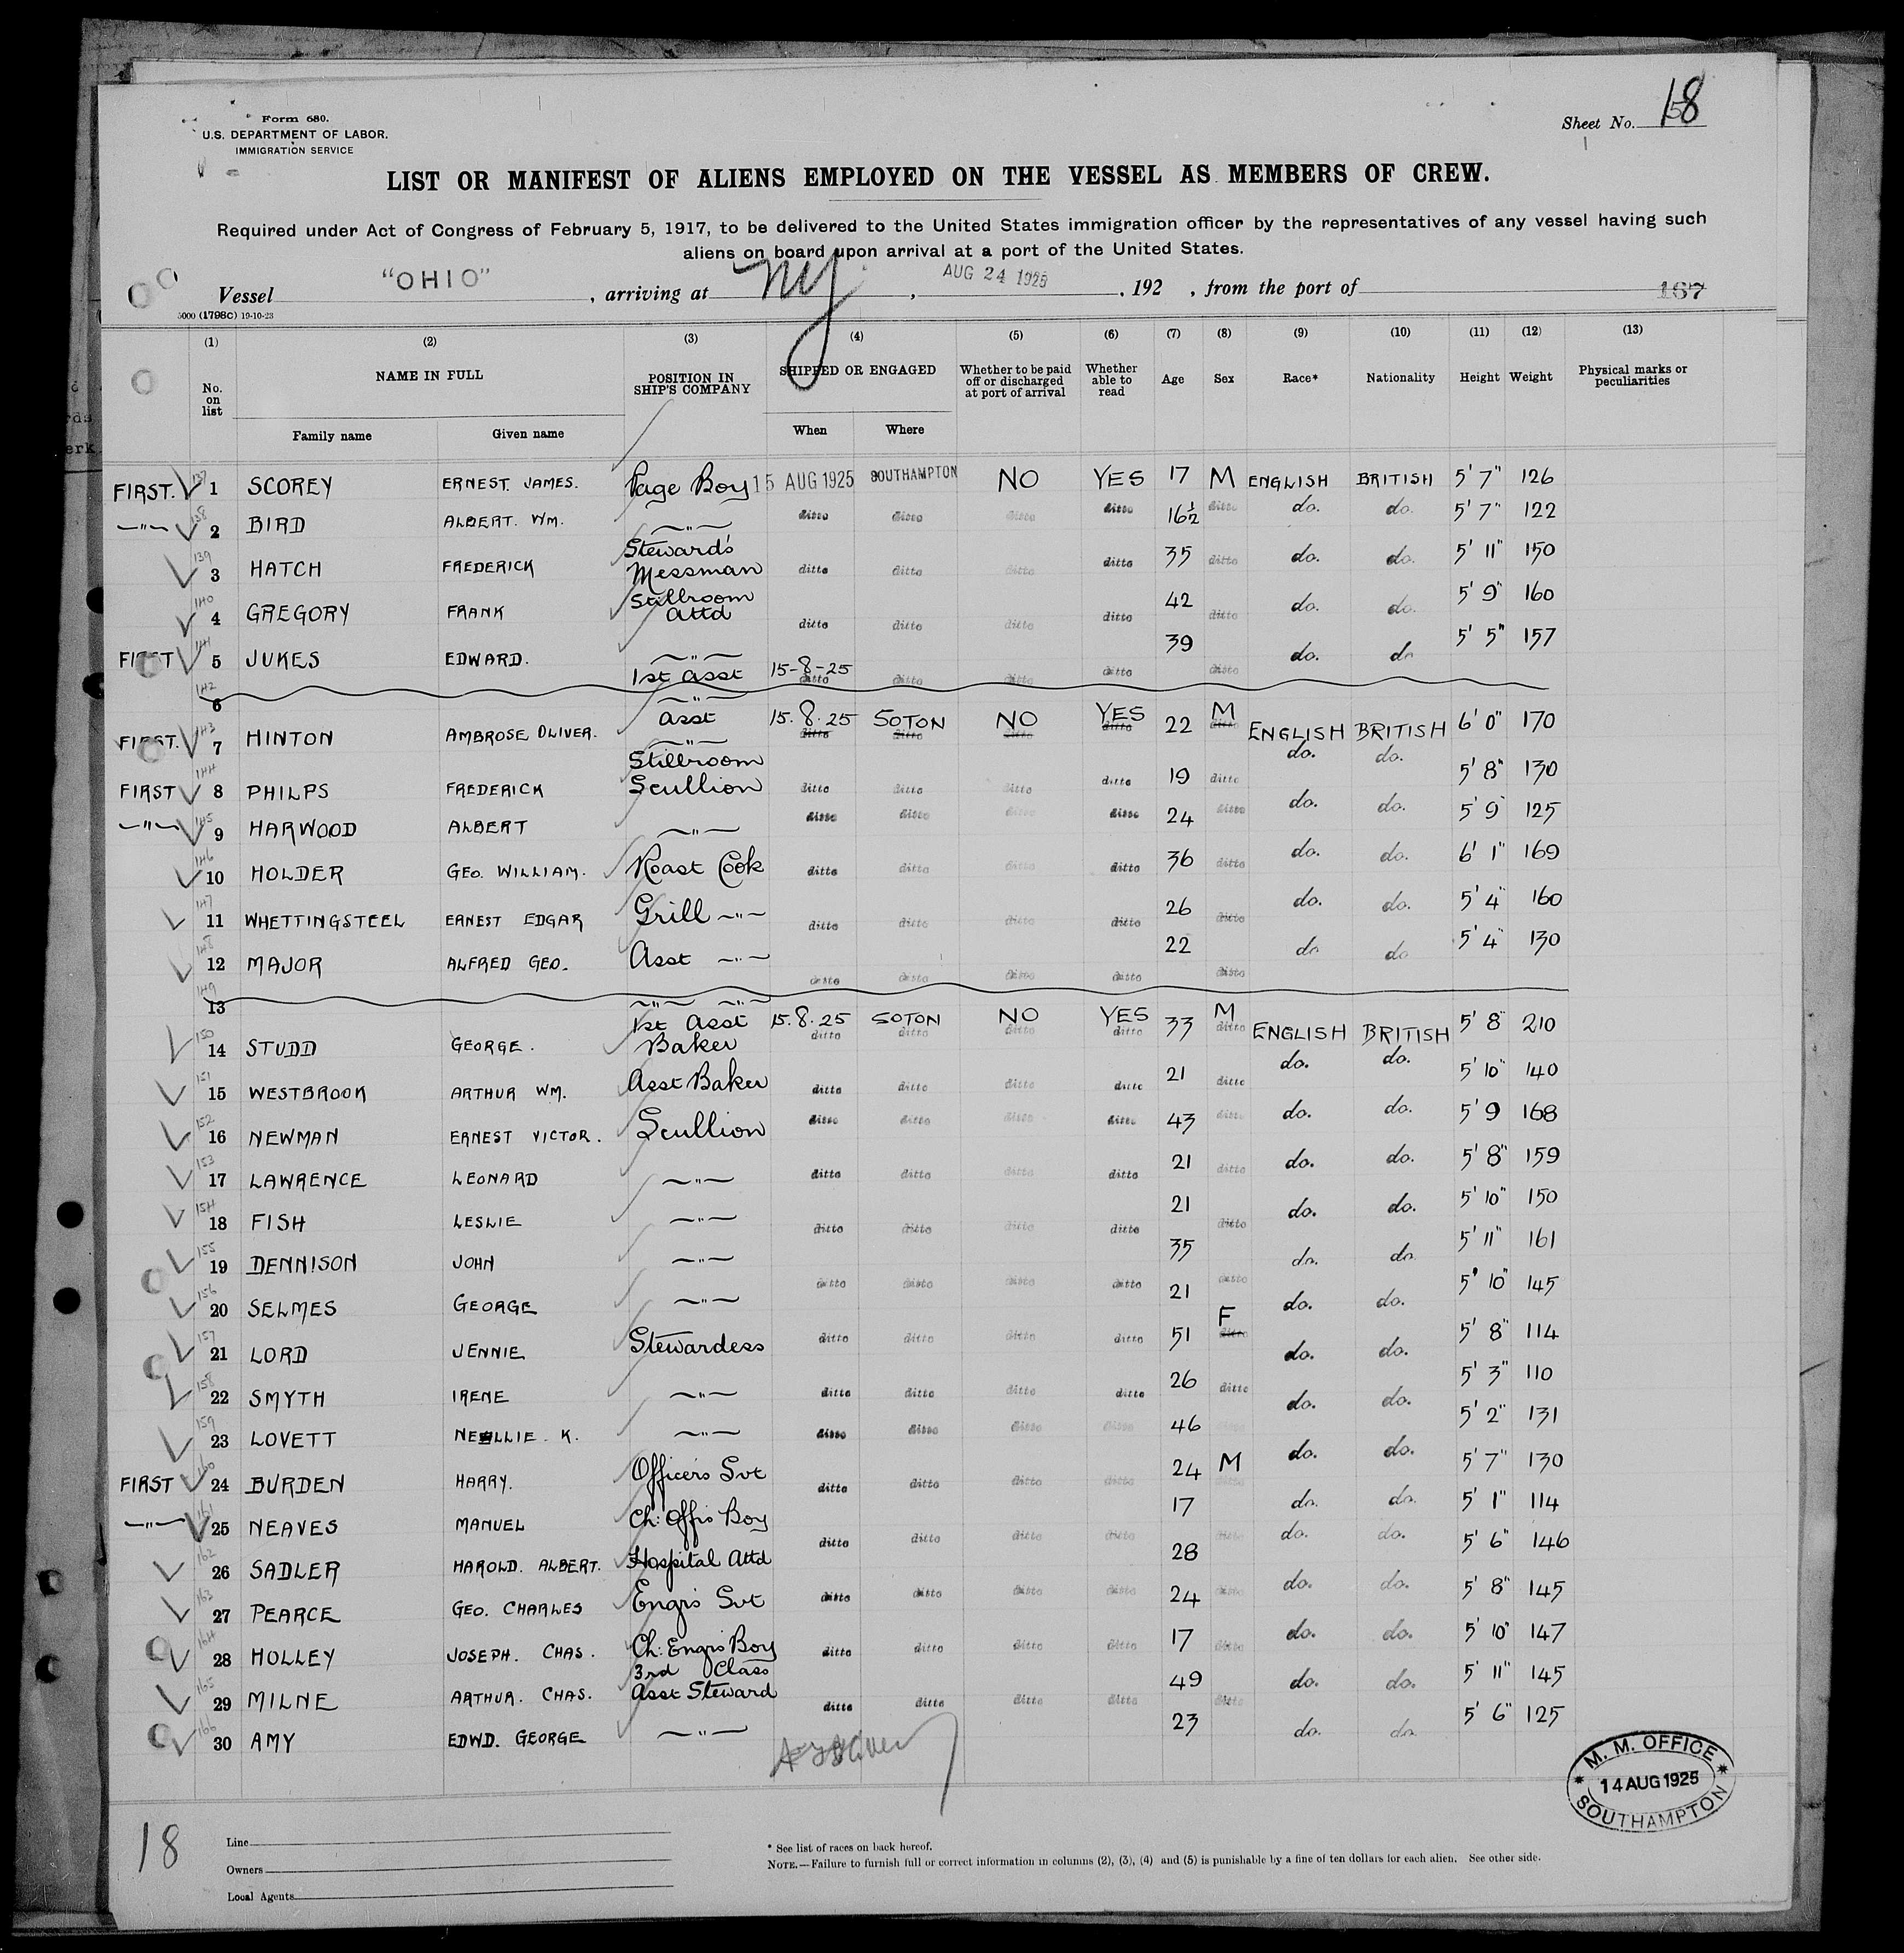 Form 680.
U.S. DEPARTMENT OF LABOR.
IMMIGRATION SERVICE
Sheet No. 18
LIST OR MANIFEST OF ALIENS EMPLOYED ON THE VESSEL AS MEMBERS OF CREW.
Required under Act of Congress of February 5, 1917, to be delivered to the United States immigration officer by the representatives of any vessel having such
aliens on board upon arrival at a port of the United States.
Vessel "OHIO", arriving at NY, AUG 24 1925, 192 , from the port of 167
5000 (1798c) 19-10-23
(1) (2) (3) (4) (5) (6) (7) (8) (9) (10) (11) (12) (13)
No. on list NAME IN FULL POSITION IN SHIP'S COMPANY SHIPPED OR ENGAGED Whether to be paid off or discharged at port of arrival Whether able to read Age Sex Race* Nationality Height Weight Physical marks or peculiarities
Family name Given name When Where
FIRST. 137 1 SCOREY ERNEST JAMES. Page Boy 15 AUG 1925 SOUTHAMPTON NO YES 17 M ENGLISH BRITISH 5' 7" 126
—"— 138 2 BIRD ALBERT. WM. —"— ditto ditto ditto ditto 16½ ditto do. do. 5' 7" 122
139 3 HATCH FREDERICK Steward's Messman ditto ditto ditto ditto 35 ditto do. do. 5' 11" 150
140 4 GREGORY FRANK Stillroom Attd ditto ditto ditto ditto 42 ditto do. do. 5' 9" 160
FIRST 141 5 JUKES EDWARD. —"— 1st Asst 15-8-25 ditto ditto ditto ditto 39 ditto do. do 5' 5" 157
142 6 —"—
FIRST. 143 7 HINTON AMBROSE OLIVER. Asst —"— 15.8.25 ditto SOTON ditto NO ditto YES ditto 22 M ditto ENGLISH BRITISH 6' 0" 170
FIRST 144 8 PHILPS FREDERICK Stillroom Scullion ditto ditto ditto ditto 19 ditto do. do. 5' 8" 130
—"— 145 9 HARWOOD ALBERT —"— ditto ditto ditto ditto 24 ditto do. do. 5' 9 125
146 10 HOLDER GEO. WILLIAM. Roast Cook ditto ditto ditto ditto 36 ditto do. do. 6' 1" 169
147 11 WHETTINGSTEEL ERNEST EDGAR Grill —"— ditto ditto ditto ditto 26 ditto do. do. 5' 4" 160
148 12 MAJOR ALFRED GEO. Asst —"— ditto ditto ditto ditto 22 ditto do do 5' 4" 130
149 13 —"— —"—
150 14 STUDD GEORGE. 1st Asst Baker 15.8.25 ditto SOTON ditto NO ditto YES ditto 33 M ditto ENGLISH BRITISH 5' 8" 210
151 15 WESTBROOK ARTHUR WM. Asst Baker ditto ditto ditto ditto 21 ditto do. do. 5' 10" 140
152 16 NEWMAN ERNEST VICTOR. Scullion ditto ditto ditto ditto 43 ditto do. do. 5' 9 168
153 17 LAWRENCE LEONARD —"— ditto ditto ditto ditto 21 ditto do. do. 5' 8" 159
154 18 FISH LESLIE —"— ditto ditto ditto ditto 21 ditto do. do. 5' 10" 150
155 19 DENNISON JOHN —"— ditto ditto ditto ditto 35 ditto do. do 5' 11" 161
156 20 SELMES GEORGE —"— 21 do. do. 5' 10" 145
157 21 LORD JENNIE Stewardess ditto ditto ditto ditto 51 F ditto do. do. 5' 8" 114
158 22 SMYTH IRENE —"— ditto ditto ditto ditto 26 ditto do. do. 5' 3" 110
159 23 LOVETT NELLIE K. —"— ditto ditto ditto ditto 46 do. do. 5' 2" 131
FIRST 160 24 BURDEN HARRY. Officers Svt ditto ditto ditto ditto 24 M ditto do. do. 5' 7" 130
—"— 161 25 NEAVES MANUEL Ch: Offrs Boy ditto ditto ditto ditto 17 ditto do. do. 5' 1" 114
162 26 SADLER HAROLD. ALBERT. Hospital Attd 28 5' 6" 146
163 27 PEARCE GEO. CHARLES Engrs Svt ditto ditto ditto ditto 24 ditto do. do. 5' 8" 145
164 28 HOLLEY JOSEPH. CHAS. Ch: Engrs Boy ditto ditto ditto ditto 17 ditto do. do. 5' 10" 147
165 29 MILNE ARTHUR. CHAS. 3rd Class Asst Steward ditto ditto ditto ditto 49 ditto do. do. 5' 11" 145
166 30 AMY EDWD. GEORGE —"— 23 do. do. 5' 6" 125
M. M. OFFICE
14 AUG 1925
SOUTHAMPTON
18
Line
Owners
Local Agents
* See list of races on back hereof.
NOTE.—Failure to furnish full or correct information in columns (2), (3), (4) and (5) is punishable by a fine of ten dollars for each alien. See other side.